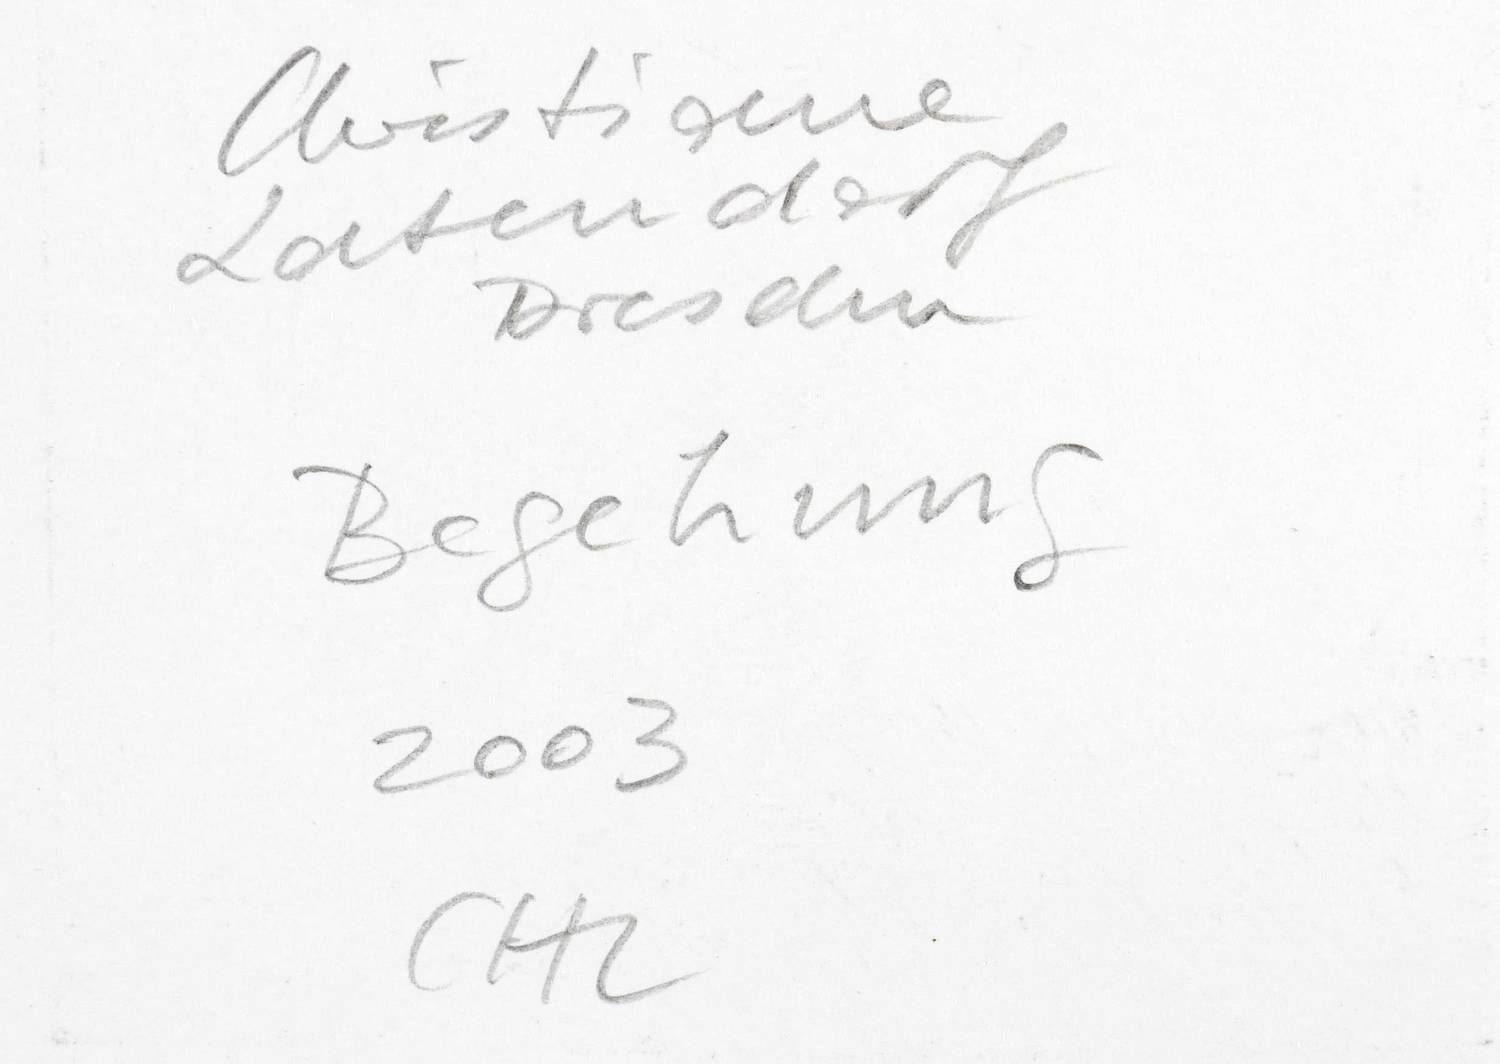 Christiane
Latendorf
Dresden
Begehung
2003
CHL